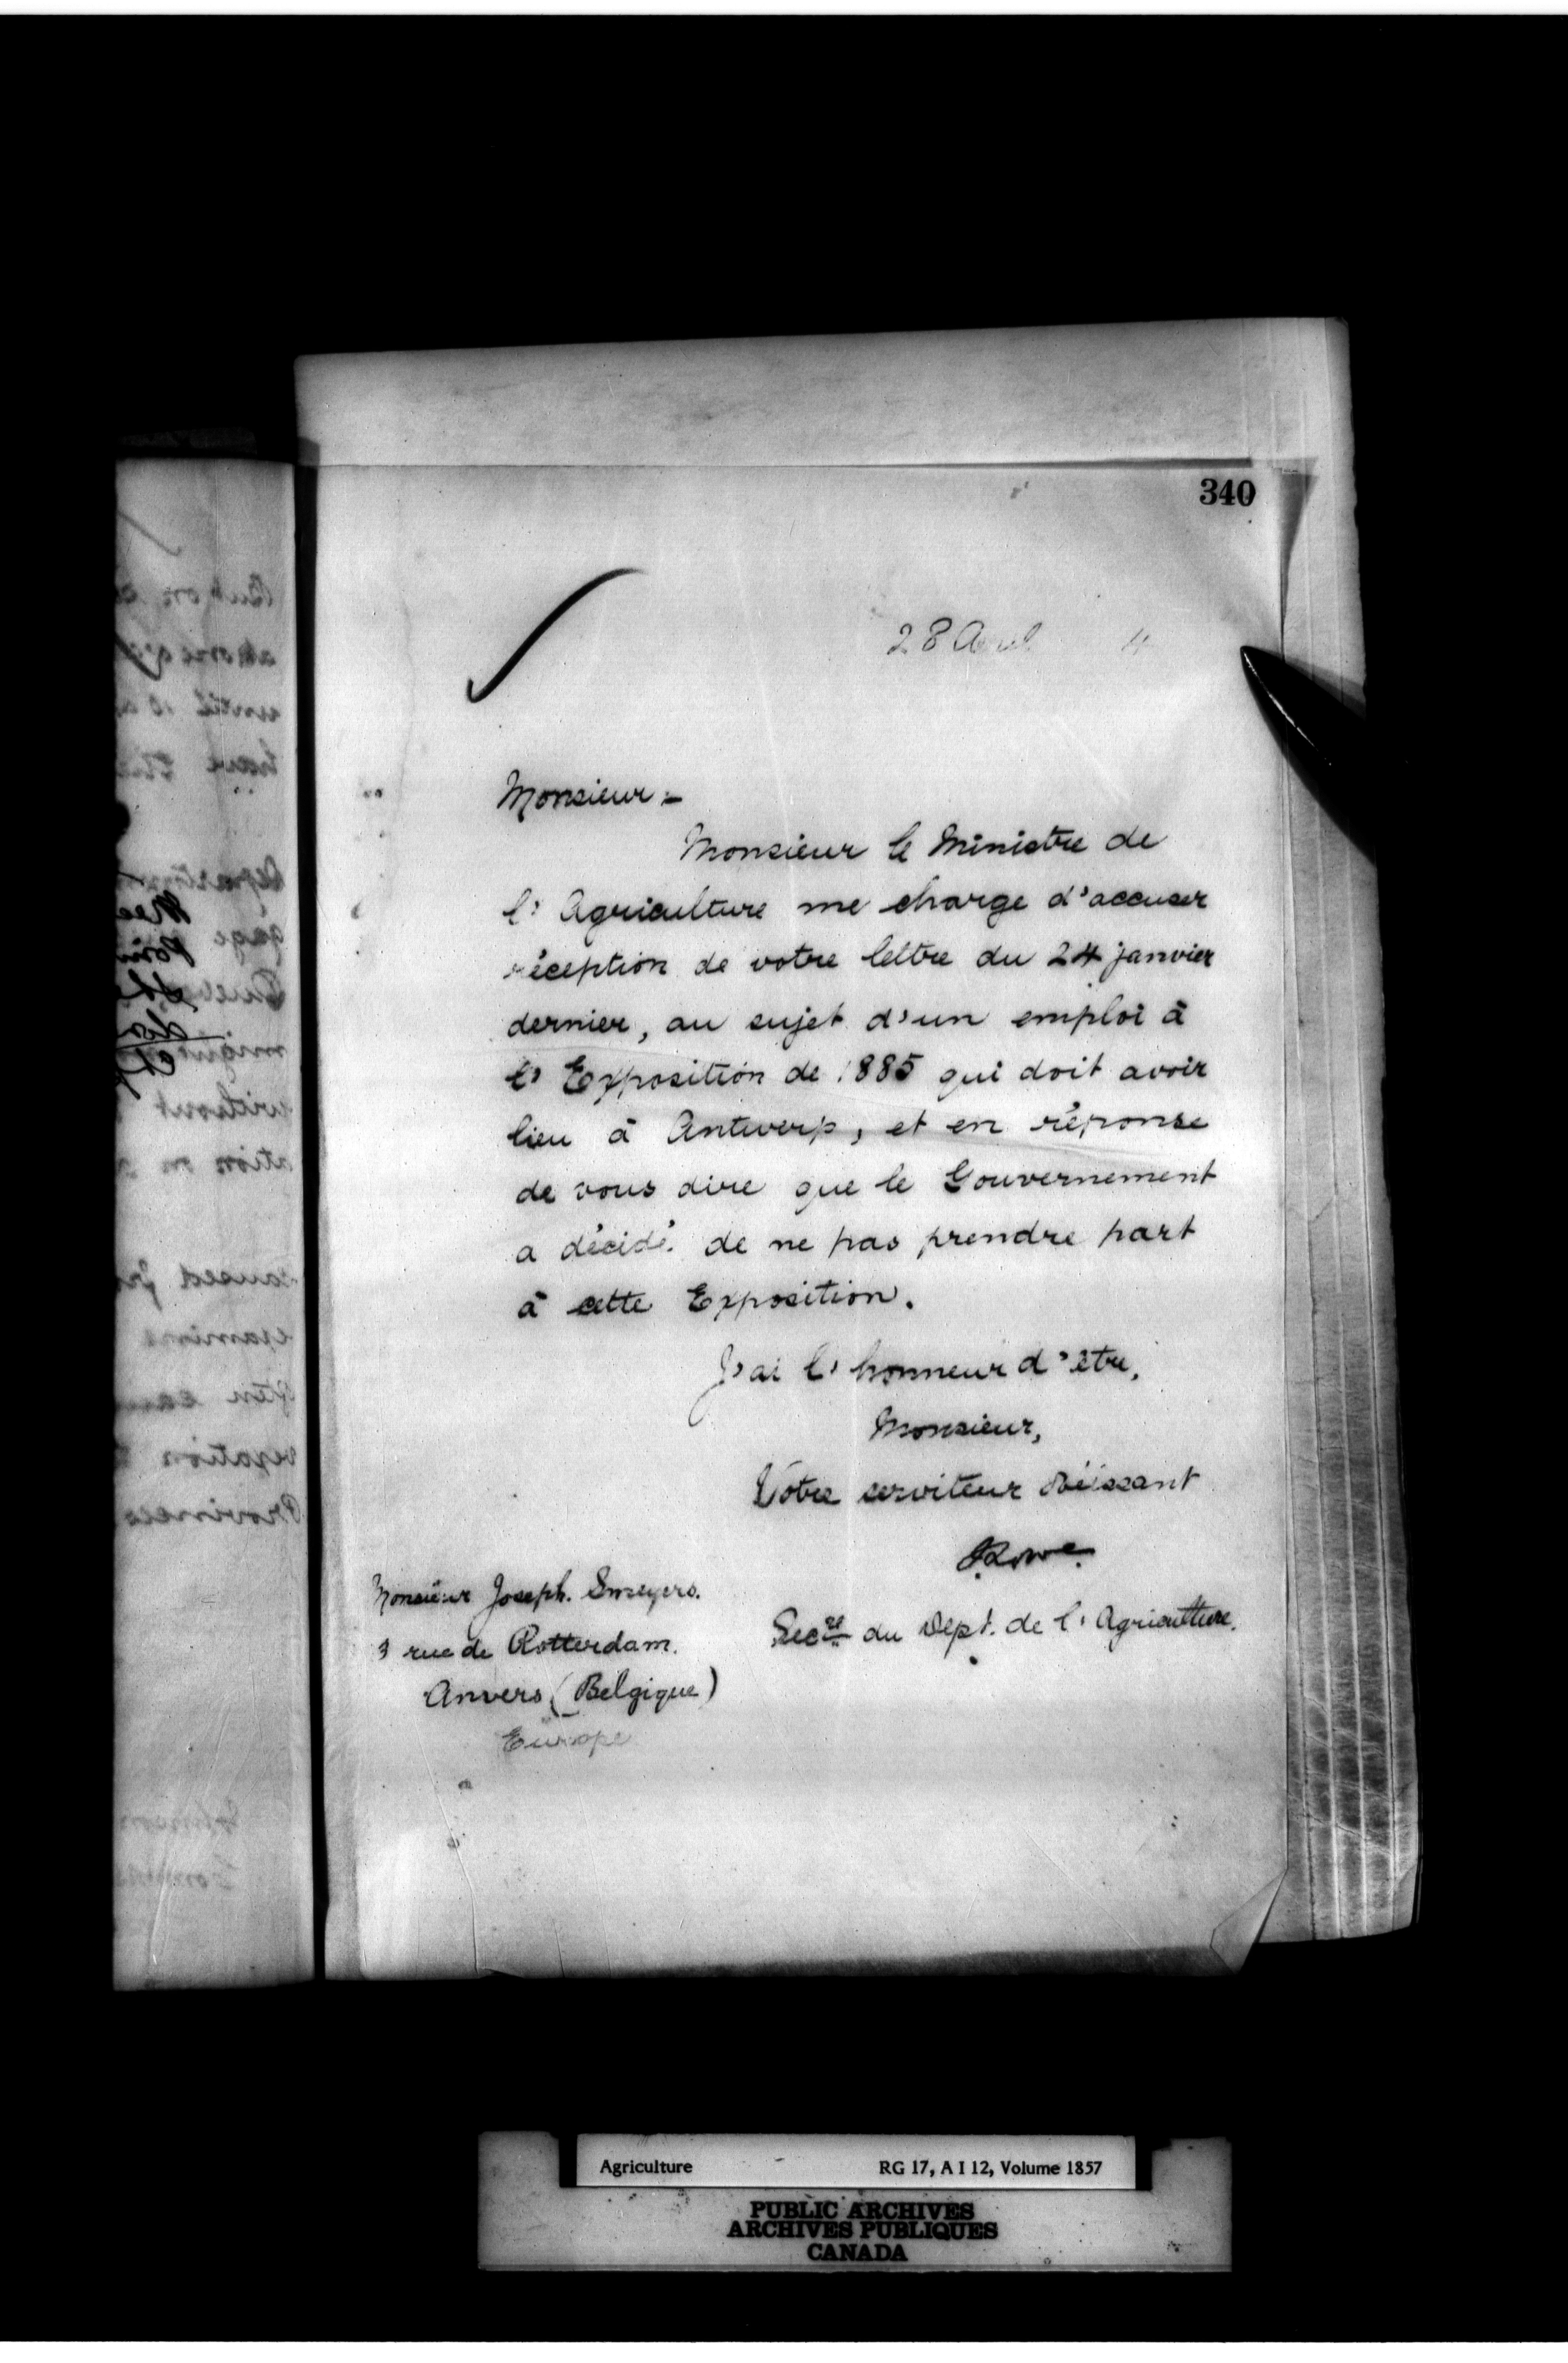 340
28 Avril 4
Monsieur:-
Monsieur le Ministre de
l'Agriculture me charge d'accuser
réception de votre lettre du 24 janvier
dernier, au sujet d'un emploi à
l'Exposition de 1885 qui doit avoir
lieu à Antwerp, et en réponse
de vous dire que le Gouvernement
a décidé de ne pas prendre part
à cette Exposition.
J'ai l'honneur d'être,
Monsieur,
Votre serviteur obéissant
Lowe
Secre du Dept. de l'Agriculture.
Monsieur Joseph. Smeyers.
3 rue de Rotterdam.
Anvers (Belgique)
Europe
Agriculture RG 17, A I 12, Volume 1857
PUBLIC ARCHIVES
ARCHIVES PUBLIQUES
CANADA